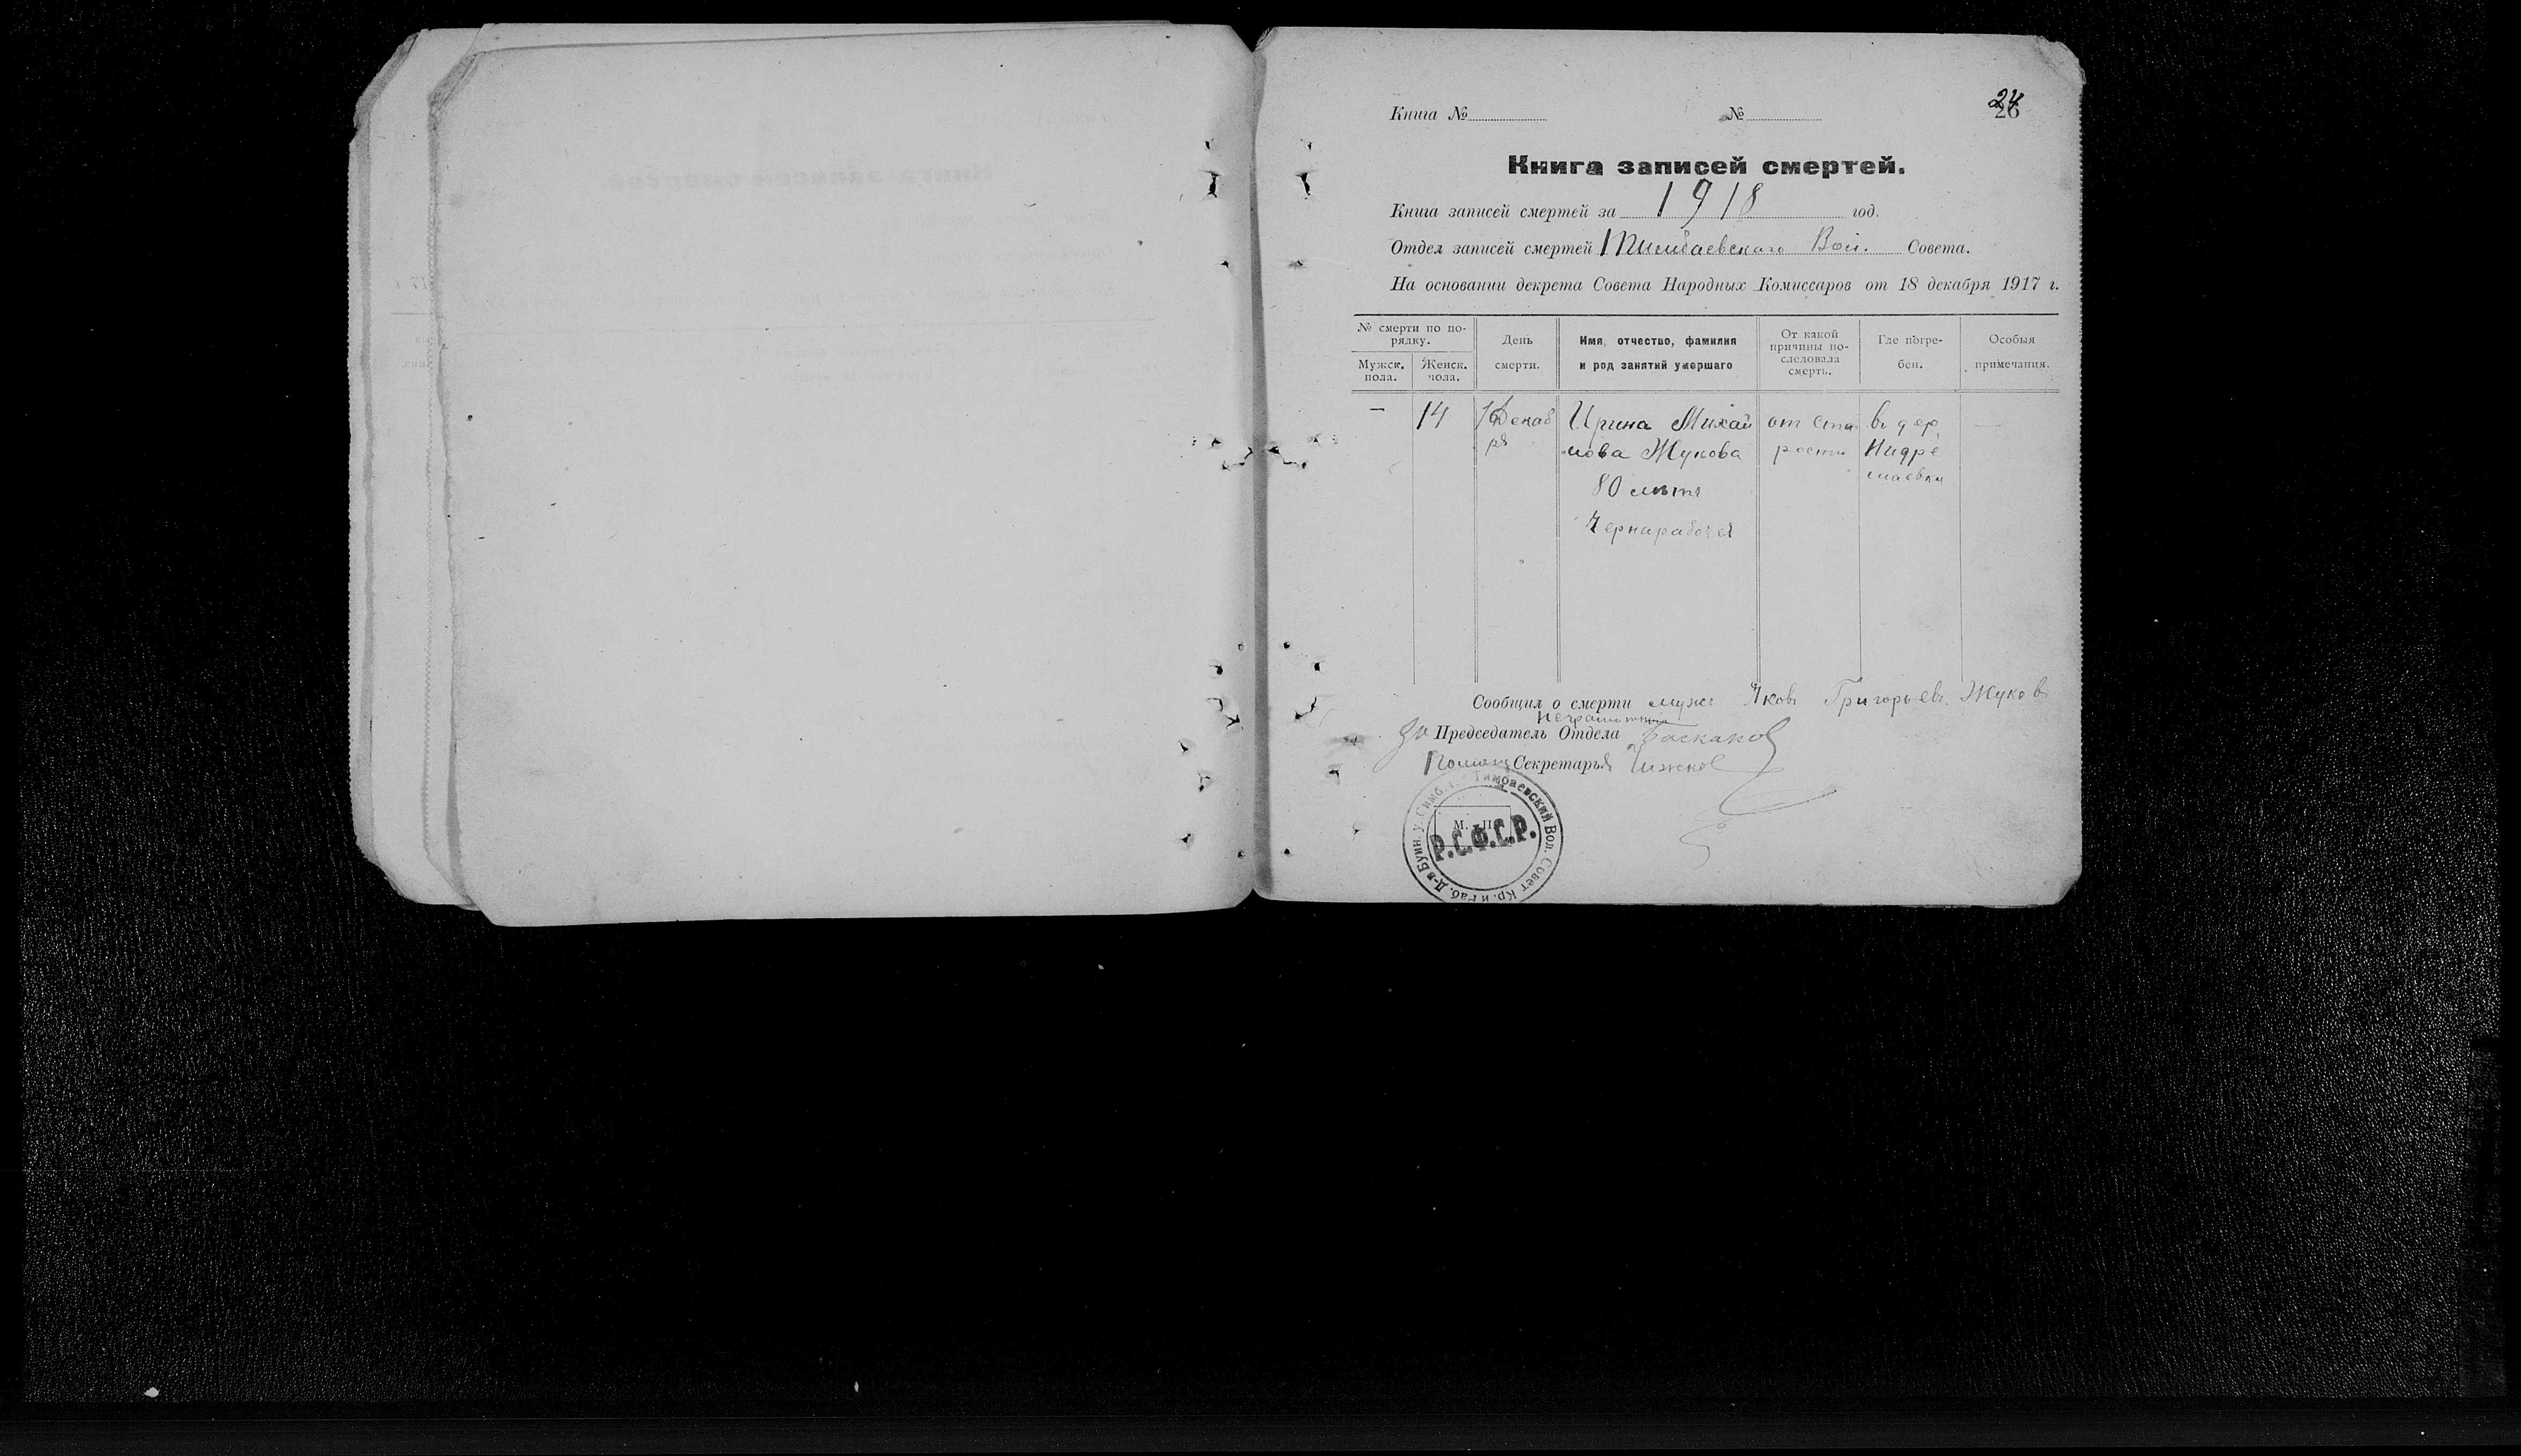 Книга №
№
24
26
Книга записей смертей.
Книга записей смертей за 1918 год.
Отдел записей смертей Тимбаевскаго Вол. Совета.
На основании декрета Совета Народных Комиссаров от 18 декабря 1917 г.
№ смерти по по-
рядку.
Мужск.
пола.
Женск.
пола.
День
смерти.
Имя, отчество, фамилия
и род занятий умершаго
От какой
причины по-
следовала
смерть.
Где погре-
бен.
Особыя
примечания.
—
14
16 Декаб
ря
Ирина Михай
лова Жукова
80 летъ
Чернарабочая
от ста
рости
въ дер.
—
Сообщил о смерти мужъ Яковъ Григорьевъ Жуковъ
неграмотный
За Председатель Отдела Баскаков
Помощ Секретарья Чижков
М. П.
Р.С.Ф.С.Р.
Тимбаевский Вол. Совет Кр. и Раб. Д-в Буин. у. Симб. г.